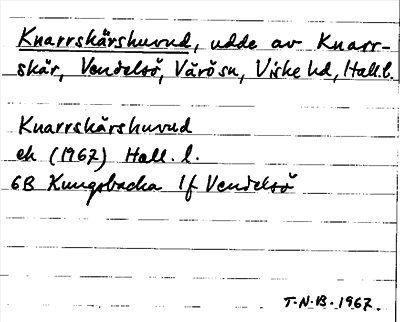 Knarrskärshuvud, udde av Knarr-
skär, Vendelsö, Värö sn, Viske hd, Hall. l.
Knarrskärshuvud
ek (1967) Hall. l.
6B Kungsbacka 1f Vendelsö
T.N.B. 1967.